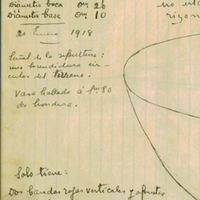 Diámetro boca 0m. 26
Diámetro base 0m. 10
21 Enero 1918
Señal de la sepultura:
una hondura cir-
cular del terreno.
Vaso hallado á 1m.80
de hondura.
Solo tiene:
Dos bandas rojas verticales y opuestas
no ula
rizon